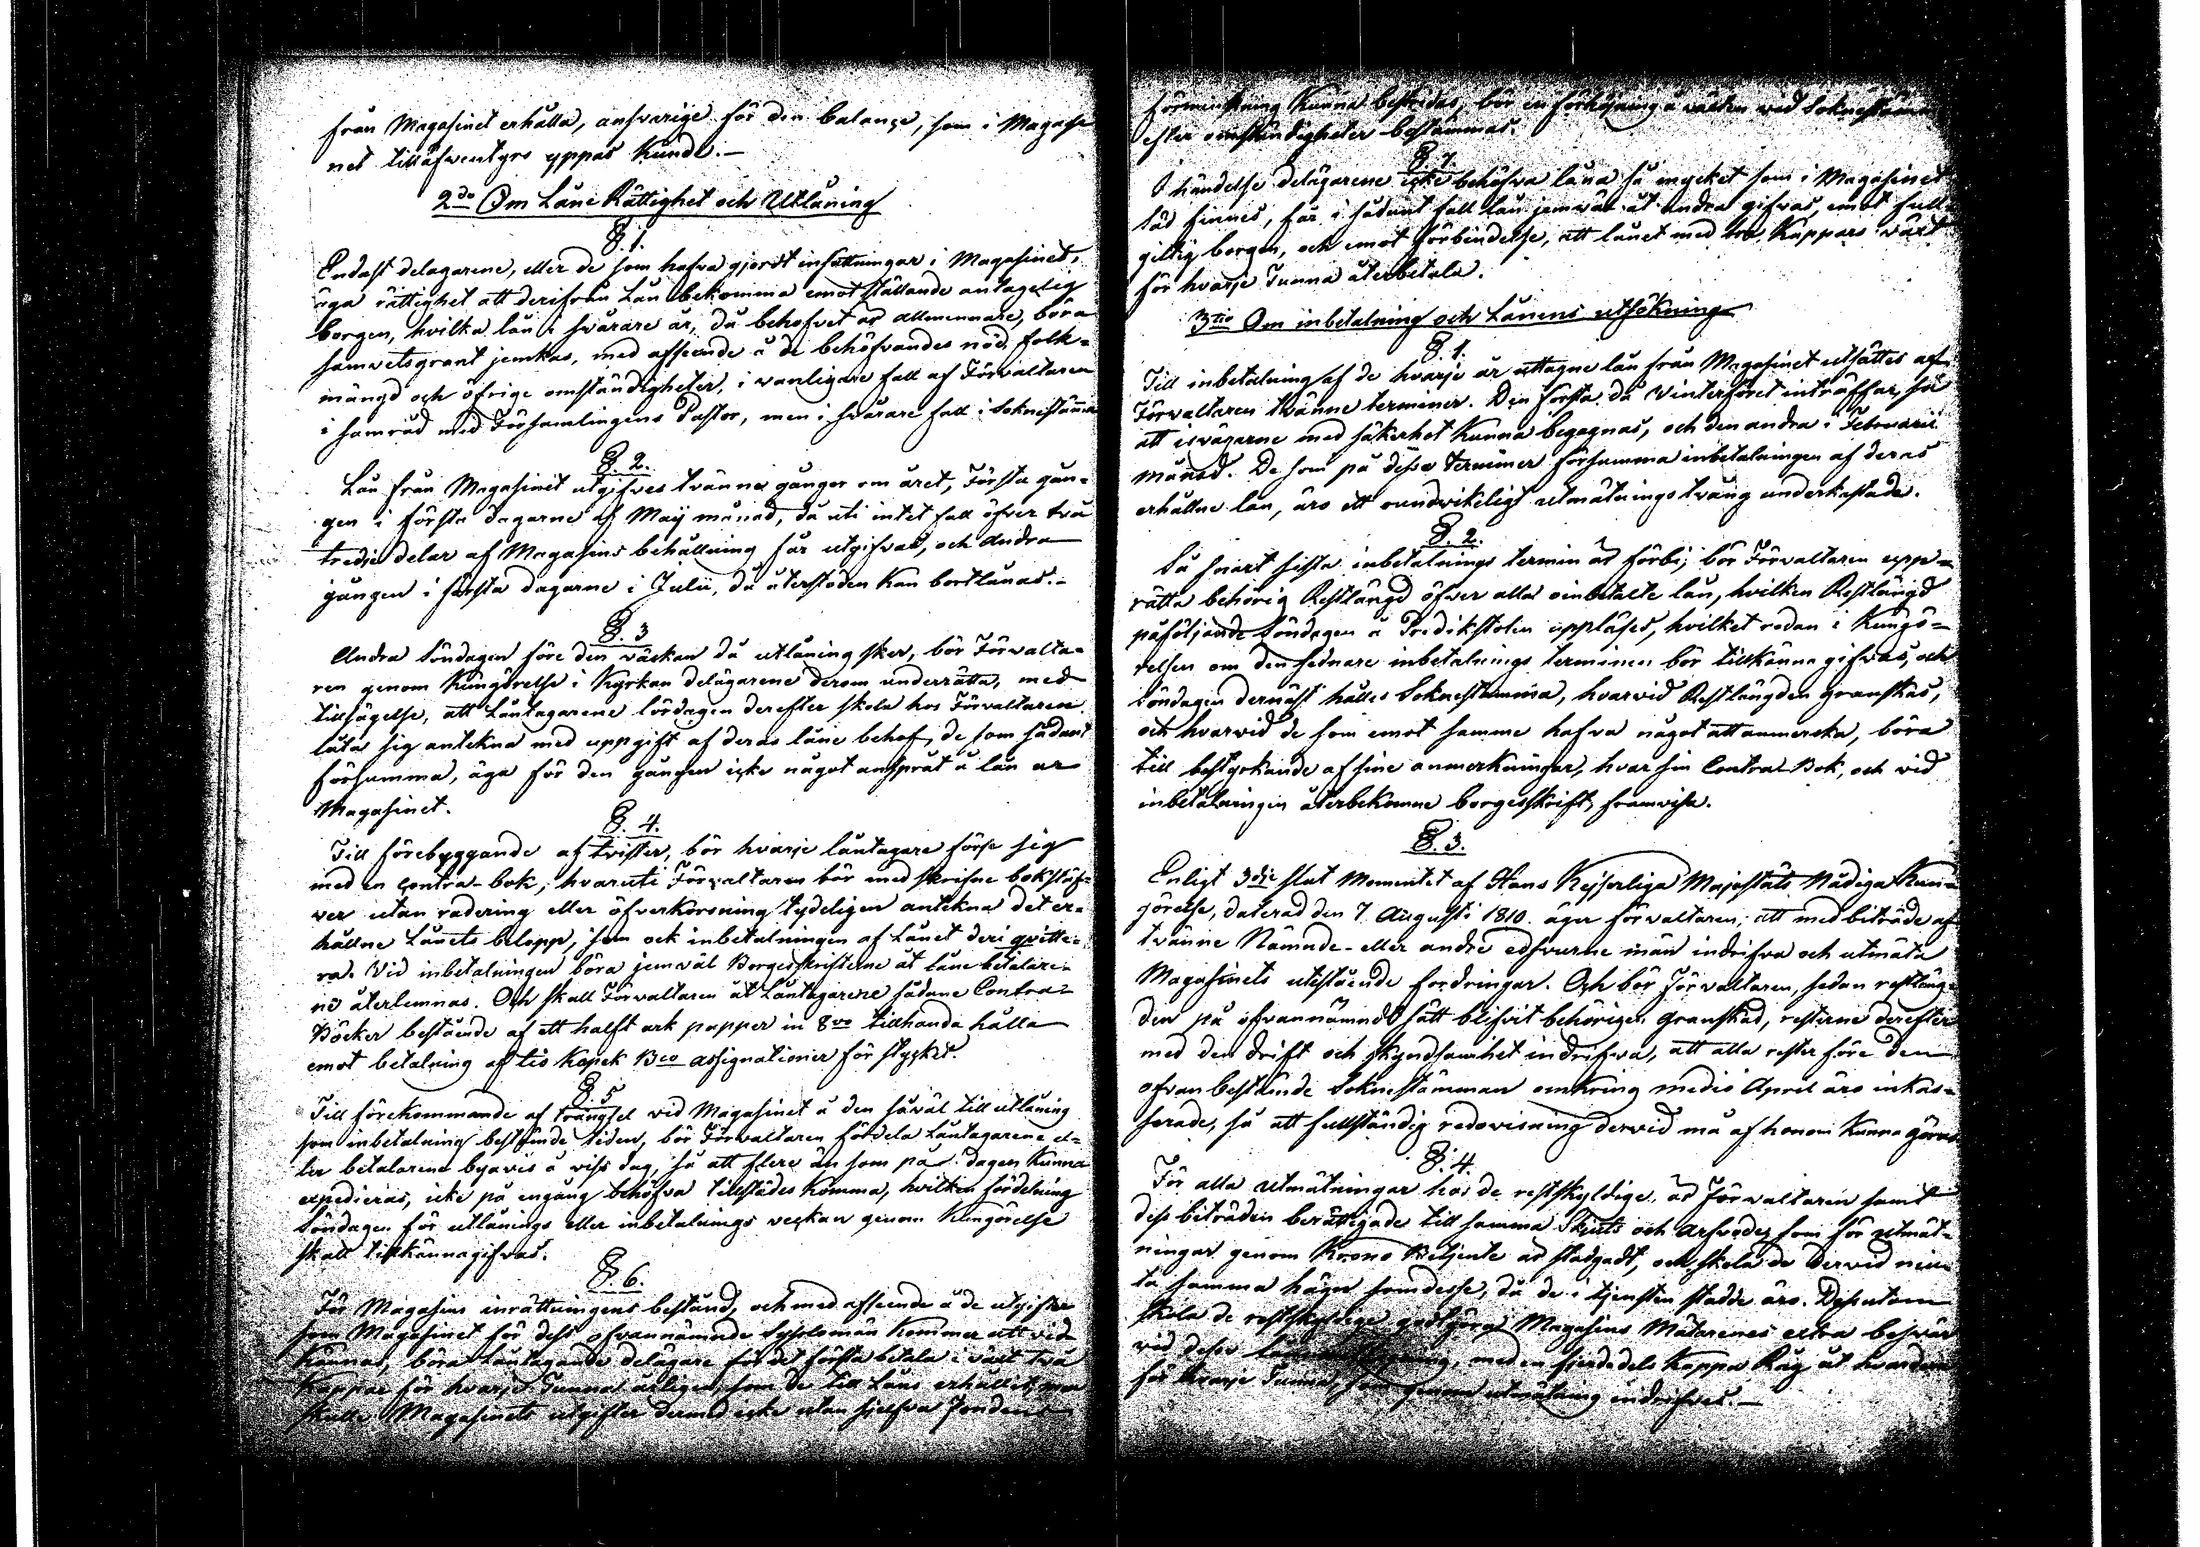 från Magasinet erhålla, ansvarige för den balançe, som i Magasi
net tilläfventyrs yppas kunde.—
2do Om Låne Rättighet och Utlåning
§. 1.
Endast delägarene, eller de som hafva gjordt insättningar i Magasinet,
äga rättighet att derifrån Lån bekomma emot ställande antagelig
borgen, hvilka lån i svårare år, då behofvet är allmennare, böra
samvetsgrant jemkas, med afseende å de behöfvandes nöd, folk=
mängd och öfrige omständigheter, i vanligare fall af Förvaltaren
i samråd med Församlingens Pastor, men i svårare fall i Soknestämma
§. 2.
Lån från Magasinet utgifves tvänne gånger om året, Första gån=
gen i första dagarne af Maij månad, då uti intet fall öfver två
tredje delar af Magasins behållning får utgifvas, och Andra
gången i första dagarne i Julii, då återstoden kan bortlånas.-
§. 3
Andra Söndagen före den veckan då utlåning sker, bör Förvalta=
ren genom Kungörelse i Kyrkan delägarene derom underrätta, med
tillsägelse, att Låntagarene lördagen derefter skola hos Förvaltaren
låta sig antekna med uppgift af deras låne behof, de som sådant
försumma, äga för den gången icke något anspråk å lån ur
Magasinet.
§. 4.
Till förebyggande af tvister, bör hvarje låntagare förse sig
med en contra-bok, hvaruti Förvaltaren bör med skrifne bokstäf=
ver utan radering eller öfverkorsning tydeligen antekna det er=
hållne Lånets belopp, som ock inbetalningen af Lånet deri qvitte=
ra. Vid inbetalningen böra jemväl Borgesskrifterne åt låne betalare=
ne återlemnas. Och skall Förvaltaren åt Låntagarene sådane Contra=
Böcker bestående af ett halft ark papper in 8vo tillhanda hålla
emot betalning af tio Kopek Bco assignationer för stycket.
§. 5
Till förekommande af trängsel vid Magasinet å den såväl till utlåning
som inbetalning bestämde tiden, bör Förvaltaren fördela Låntagarene el=
ler betalarene byavis å viss dag, så att flere än som på dagen kunna
expedieras, icke på engång behöfva tillstädes komma, hvilken fördelning
Söndagen för utlånings eller inbetalnings veckan genom Kungörelse
skall tillkännagifvas.
§. 6.
För Magasins inrättningens bestånd, och med afseende å de utgifter
som Magasinet för dess ofvannämnde Sysslomän kommer att vid
kännas, böra Låntagande delägare för det första betala i växt två
Kappar för hvarje Tunna årligen, som de till Låns erhållit, men
skulle Magasinets utgifter dermed icke utan sjelfva fondens
förminskning kunna bestridas, bör en förhöjning å växten vid Soknestämma
efter omständigheter bestämmas.
§. 7.
I händelse delägarene icke behöfva låna så mycket som i Magasinet
säd finnes, får i sådant fall lån jemväl åt andra gifvas, emot full=
giltig borgen, och emot förbindelse, att lånet med tre Kappars växt
för hvarje Tunna återbetala.
3tio Om inbetalning och Lånens utsökning
§. 1.
Till inbetalning af de hvarje år uttagne lån från Magasinet utsättes af
Förvaltaren tvänne terminer. Den första då Vinterföret inträffar, så
att isvägarne med säkerhet kunna begagnas, och den andra i Februarii
månad. De som på desse terminer försumma inbetalningen af deras
erhållne lån, äro ett oundvikeligt utmätnings tvång underkastade.
§. 2.
Så snart sista inbetalnings termin är förbi, bör Förvaltaren upp=
rätta behörig Restlängd öfver alla oinbetalte lån, hvilken Restlängd
påföljande Söndagen å Predikstolen uppläses, hvilket redan i Kungö=
relsen om den sednare inbetalnings terminen bör tillkänna gifvas, och
Söndagen dernäst hålles Soknestämma, hvarvid Restlängden granskas,
och hvarvid de som emot samma hafva något att anmerka, böra
till bestyrkande af sine anmerkningar, hvar sin Contra-Bok, och vid
inbetalningen återbekomne borgesskrift, framvisa.
§. 3.
Enligt 3dje slut Momentet af Hans Kejserliga Majestäts Nådiga Kun=
görelse, daterad den 7. Augusti 1810. äger förvaltaren, att med biträde af
tvänne Nämnde- eller andre edsvurne män indrifva och utmäta
Magasinets utestående fordringar. Och bör Förvaltaren, sedan restläng=
den på ofvannämndt sätt blifvit behörigen granskad, resterne derefter
med den drift och skyndsamhet indrifva, att alla rester före den
ofvan bestämde Soknestämman omkring medio April äro inkas=
serade, så att fullständig redovisning dervid må af honom kunna göras
§. 4.
För alla utmätningar hos de restskyldige, är Förvaltaren samt
dess biträden berättigade till samma Skjuts och Arfvode, som för utmät=
ningar genom Krono Betjente är stadgadt, och skola de dervid niu=
ta samma hägn som desse, då de i tjensten stadde äro. Dessutom
skola de restskyldige godtgöra Magasins Mätarenes extra besvär
vid desse med en fjerdedels Kappa Råg åt hvardera
för hvarje Tunna, som genom utmätning indrifves.—